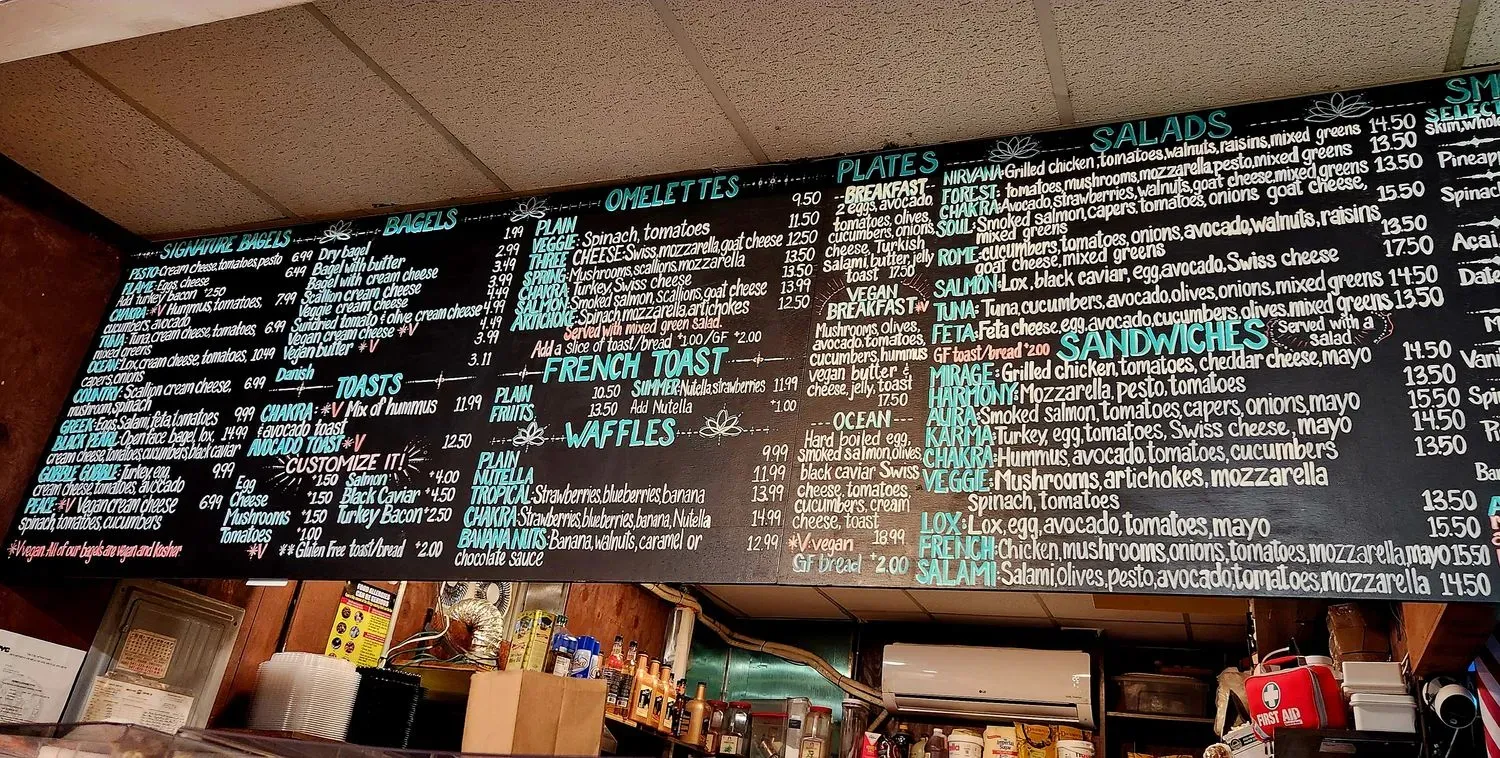 SIGNATURE BAGELS
PESTO: Cream cheese, tomatoes, pesto 6.99
FLAME: Eggs, cheese 6.49
Add Turkey bacon +2.50
CHAKRA: *V Hummus, tomatoes, 7.99
cucumbers, avocado
TUNA: Tuna, cream cheese, tomatoes, 6.99
mixed greens
OCEAN: Lox, cream cheese, tomatoes, 10.49
capers, onions
COUNTRY: Scallion cream cheese, 6.99
mushroom, spinach
GREEK: Eggs, Salami, feta, tomatoes 9.99
BLACK PEARL: Open face bagel, lox, 14.99
cream cheese, tomatoes, cucumbers, black caviar
GOBBLE GOBBLE: Turkey, egg, 9.99
cream cheese, tomatoes, avocado
PEACE: *V Vegan cream cheese 6.99
spinach, tomatoes, cucumbers
*V vegan. All of our bagels are vegan and Kosher
BAGELS
Dry bagel 1.99
Bagel with butter 2.99
Bagel with cream cheese 3.49
Scallion cream cheese 3.99
Veggie cream cheese 4.49
Sundried tomato & olive cream cheese 4.99
Vegan cream cheese *V 4.49
Vegan butter *V 3.99
Danish 3.11
TOASTS
CHAKRA: *V Mix of hummus 11.99
& avocado toast
AVOCADO TOAST *V 12.50
CUSTOMIZE IT!
Egg +1.50 Salmon +4.00
Cheese +1.50 Black Caviar +4.50
Mushrooms +1.50 Turkey Bacon +2.50
Tomatoes +1.00
*V **Gluten Free toast/bread +2.00
OMELETTES
PLAIN 9.50
VEGGIE: Spinach, tomatoes 11.50
THREE CHEESE: Swiss, mozzarella, goat cheese 12.50
SPRING: Mushrooms, scallions, mozzarella 13.50
CHAKRA: Turkey, Swiss cheese 13.50
SALMON: Smoked salmon, scallions, goat cheese 13.99
ARTICHOKE: Spinach, mozzarella, artichokes 12.50
Served with mixed green salad.
Add a slice of toast/bread +1.00/GF +2.00
FRENCH TOAST
PLAIN 10.50 SUMMER: Nutella, strawberries 11.99
FRUITS 13.50 Add Nutella +1.00
WAFFLES
PLAIN 9.99
NUTELLA 11.99
TROPICAL: Strawberries, blueberries, banana 13.99
CHAKRA: Strawberries, blueberries, banana, Nutella 14.99
BANANA NUTS: Banana, walnuts, caramel or 12.99
chocolate sauce
PLATES
BREAKFAST
2 eggs, avocado
tomatoes, olives,
cucumbers, onions,
cheese, Turkish
salami, butter, jelly
toast 17.50
VEGAN
BREAKFAST *V
Mushrooms, olives,
avocado, tomatoes,
cucumbers, hummus
vegan butter &
cheese, jelly, toast
17.50
OCEAN
Hard boiled egg,
smoked salmon, olives
black caviar Swiss
cheese, tomatoes,
cucumbers, cream
cheese, toast
18.99
*V-vegan
GF bread +2.00
SALADS
NIRVANA: Grilled chicken, tomatoes, walnuts, raisins, mixed greens 14.50
FOREST: tomatoes, mushrooms, mozzarella, pesto, mixed greens 13.50
CHAKRA: Avocado, strawberries, walnuts, goat cheese, mixed greens 13.50
SOUL: Smoked salmon, capers, tomatoes, onions goat cheese, 15.50
mixed greens
ROME: cucumbers, tomatoes, onions, avocado, walnuts, raisins 13.50
goat cheese, mixed greens
SALMON: Lox, black caviar, egg, avocado, Swiss cheese 17.50
TUNA: Tuna, cucumbers, avocado, olives, onions, mixed greens 14.50
FETA: Feta cheese, egg, avocado, cucumbers, olives, mixed greens 13.50
GF toast/bread +2.00
SANDWICHES
Served with a
salad
MIRAGE: Grilled chicken, tomatoes, cheddar cheese, mayo 14.50
HARMONY: Mozzarella, pesto, tomatoes 13.50
AURA: Smoked salmon, tomatoes, capers, onions, mayo 15.50
KARMA: Turkey, egg, tomatoes, Swiss cheese, mayo 14.50
CHAKRA: Hummus, avocado, tomatoes, cucumbers 13.50
VEGGIE: Mushrooms, artichokes, mozzarella
Spinach, tomatoes 13.50
LOX: Lox, egg, avocado, tomatoes, mayo 15.50
FRENCH: Chicken, mushrooms, onions, tomatoes, mozzarella, mayo 15.50
SALAMI: Salami, olives, pesto, avocado, tomatoes, mozzarella 14.50
SM
SELECT
Skim, whole
Pineapp
Spinac
Açai
Date
Vani
Ba
LG
FIRST AID